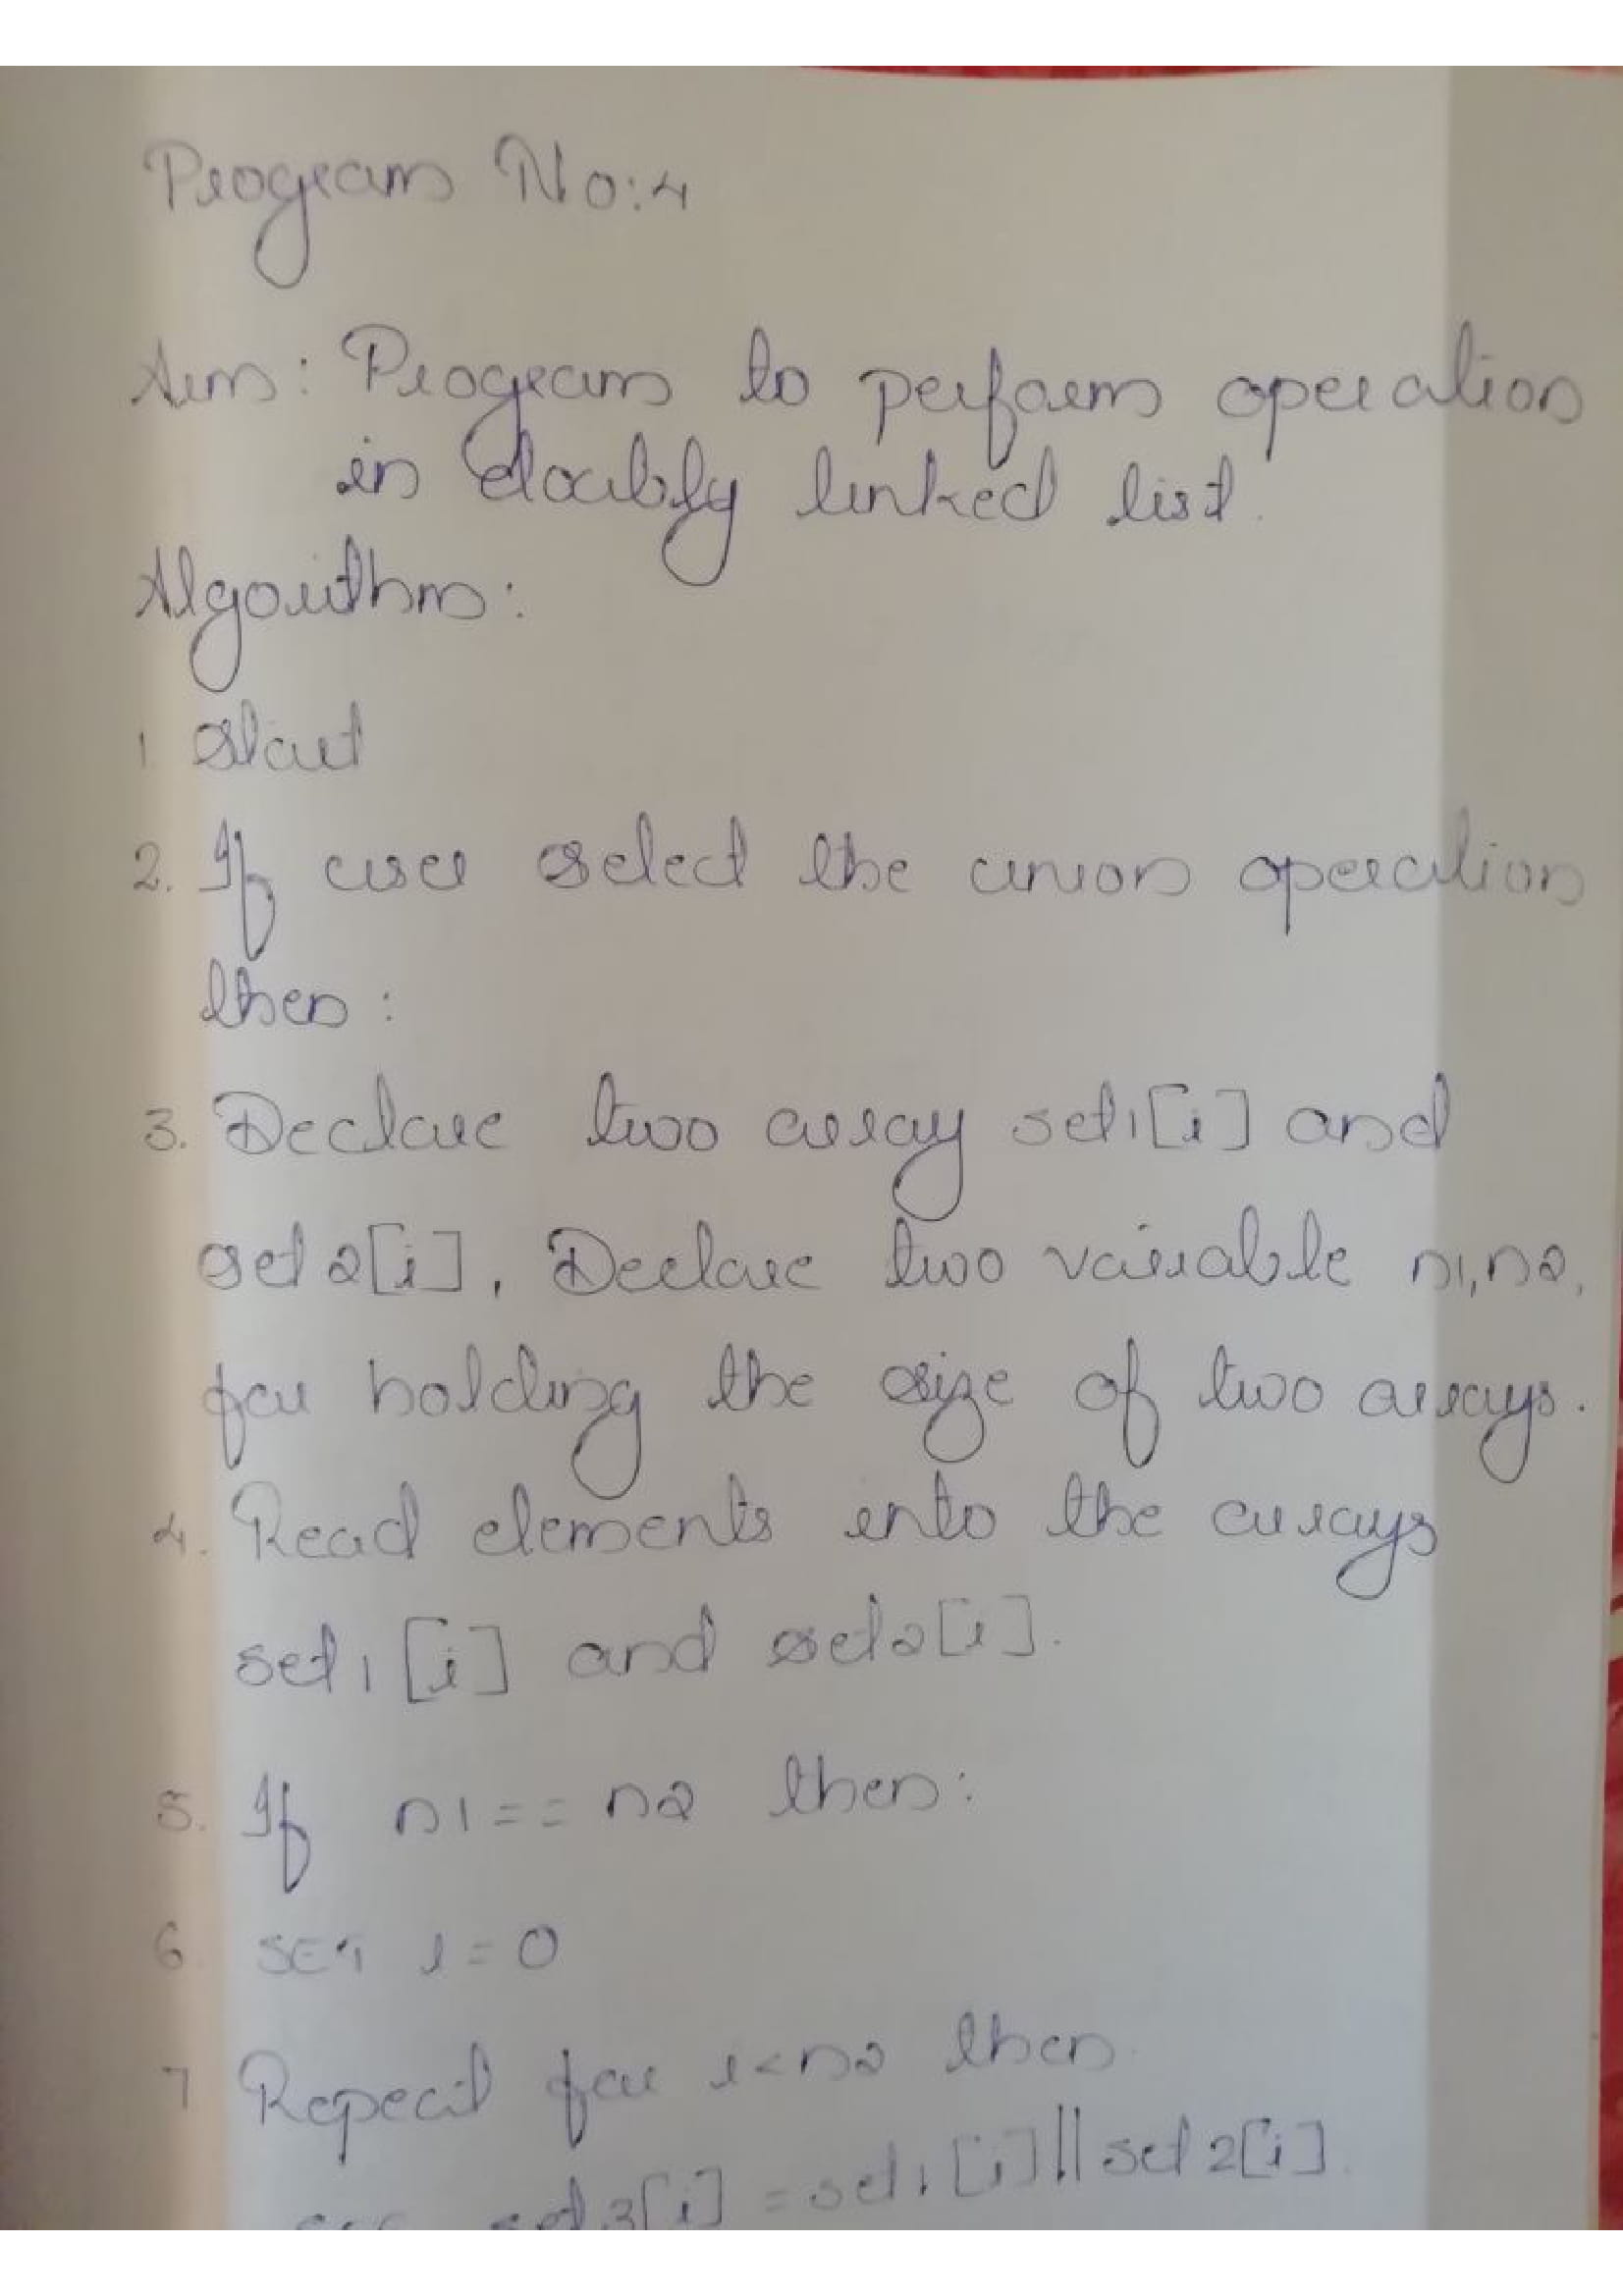 Program No:4
Aim: Program to perform operation
in doubly linked list.
Algorithm:
1. Start
2. If user select the union operation
then:
3. Declare two array set1[i] and
set2[i]. Declare two variable n1,n2,
for holding the size of two arrays.
4. Read elements into the arrays
set1[i] and set2[i].
5. If n1==n2 then:
6. SET i=0
7 Repeat for i<n2 then
set3[i] = set1[i]||set2[i].